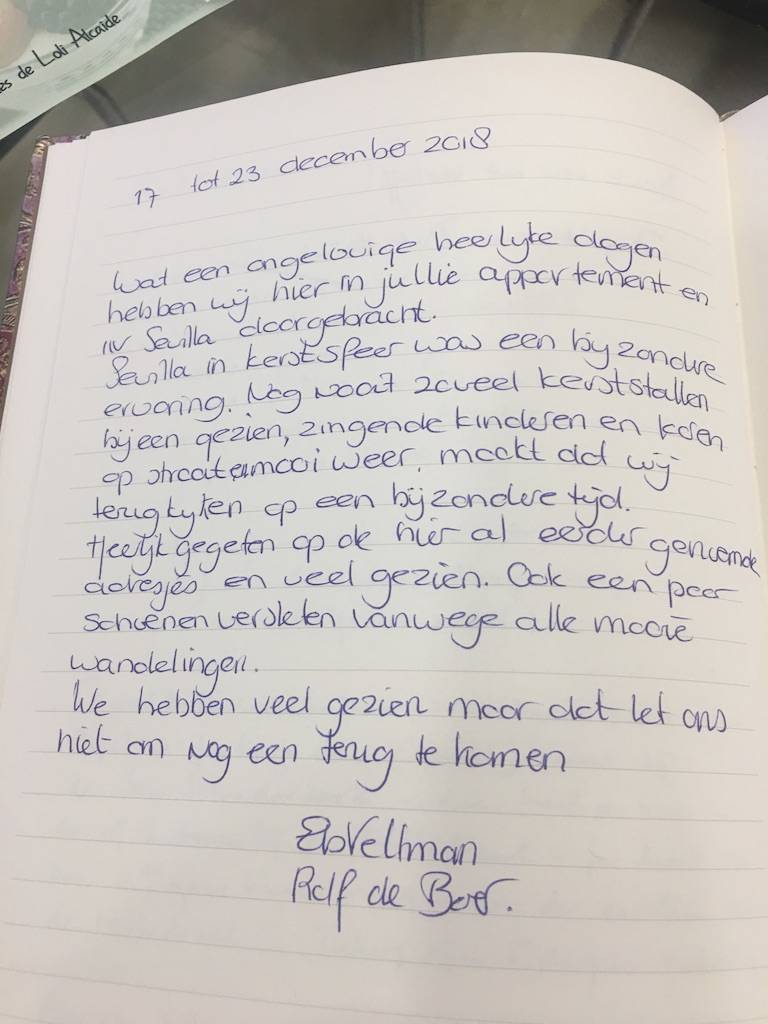 es de Loli Alcaide
17 tot 23 december 2018
Wat een ongelovige heerlyke dagen
hebben wij hier in jullie appartement en
in Sevilla doorgebracht.
Sevilla in kerstsfeer was een bijzondere
ervaring. Nog nooit zoveel kerststallen
bijeen gezien, zingende kinderen en koren
op straat mooi weer, maakt dat wij
terugkyken op een bijzondere tijd.
Heerlijk gegeten op de hier al eerder genoemde
adresjes en veel gezien. Ook een paar
schoenen versleten vanwege alle mooie
wandelingen.
We hebben veel gezien maar dat let ons
niet om nog een terug te komen
Veltman
Ralf de Boer.